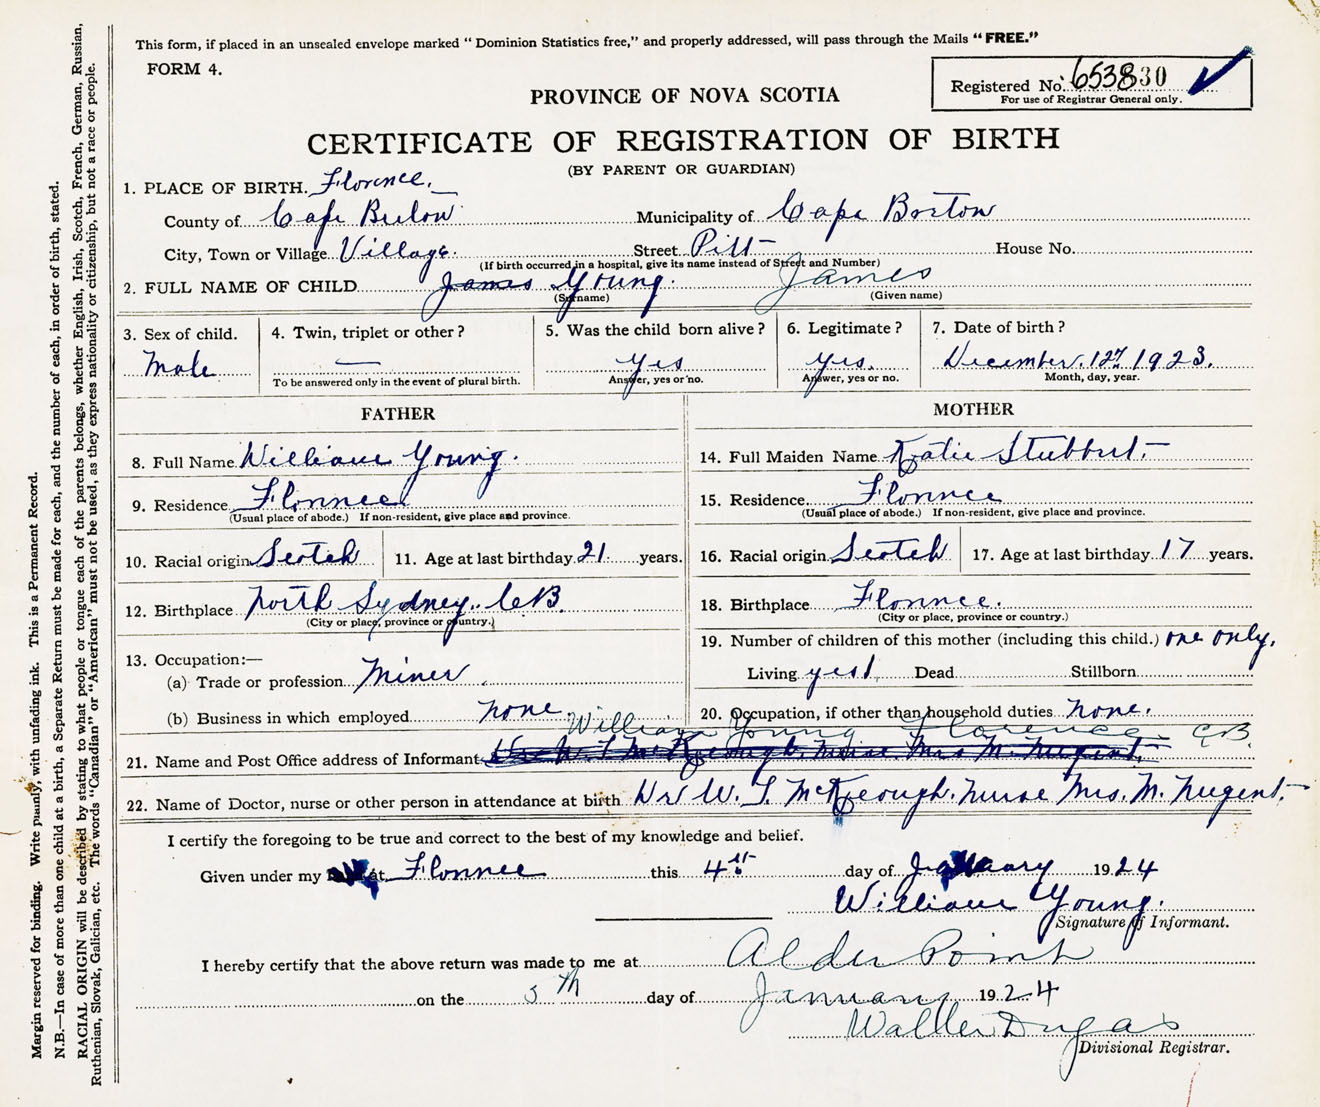 This form, if placed in an unsealed envelope marked " Dominion Statistics free," and properly addressed, will pass through the Mails "FREE."
FORM 4.
Registered No. 653830
For use of Registrar General only.
PROVINCE OF NOVA SCOTIA
CERTIFICATE OF REGISTRATION OF BIRTH
(BY PARENT OR GUARDIAN)
1. PLACE OF BIRTH. Florence.
County of Cape Breton Municipality of Cape Breton
City, Town or Village Village. Street Pitt House No.
(If birth occurred in a hospital, give its name instead of Street and Number)
2. FULL NAME OF CHILD James Young. James
(Surname) (Given name)
3. Sex of child. 4. Twin, triplet or other? 5. Was the child born alive? 6. Legitimate? 7. Date of birth?
Male — yes yes. December. 12th 1923.
To be answered only in the event of plural birth. Answer, yes or no. Answer, yes or no. Month, day, year.
FATHER
8. Full Name William Young.
9. Residence Florence
(Usual place of abode.) If non-resident, give place and province.
10. Racial origin Scotch 11. Age at last birthday 21 years.
12. Birthplace North Sydney. C.B.
(City or place, province or country.)
13. Occupation:—
(a) Trade or profession Miner
(b) Business in which employed none
MOTHER
14. Full Maiden Name Katie Stubbert.
15. Residence Florence
(Usual place of abode.) If non-resident, give place and province.
16. Racial origin Scotch 17. Age at last birthday 17 years.
18. Birthplace Florence.
(City or place, province or country.)
19. Number of children of this mother (including this child.) one only.
Living yes1 Dead Stillborn
20. Occupation, if other than household duties none.
William Young Florence C.B.
21. Name and Post Office address of Informant Dr W. S McKeough. Nurse Mrs M. Nugent.
22. Name of Doctor, nurse or other person in attendance at birth Dr W. S. McKeough. Nurse Mrs. M. Nugent.
I certify the foregoing to be true and correct to the best of my knowledge and belief.
Given under my at Florence this 4th day of January 1924
William Young.
Signature of Informant.
I hereby certify that the above return was made to me at Alder Point
on the 5th day of January 1924
Walter Dugas
Divisional Registrar.
Margin reserved for binding. Write plainly, with unfading ink. This is a Permanent Record.
N.B.—In case of more than one child at a birth, a Separate Return must be made for each, and the number of each, in order of birth, stated.
RACIAL ORIGIN will be described by stating to what people or tongue each of the parents belongs, whether English, Irish, Scotch, French, German, Russian,
Ruthenian, Slovak, Galician, etc. The words "Canadian" or "American" must not be used, as they express nationality or citizenship, but not a race or people.